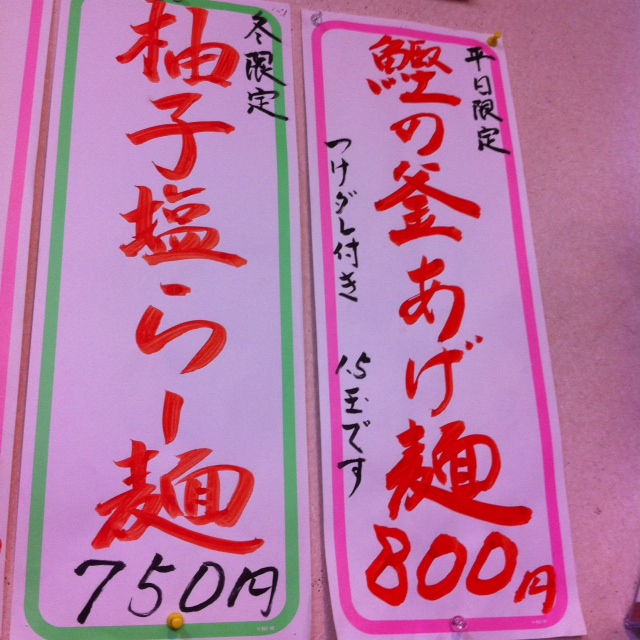 平日限定
鰹の釜あげ麺
つけダレ付き 1.5玉です
800円
冬限定
柚子塩らー麺
750円